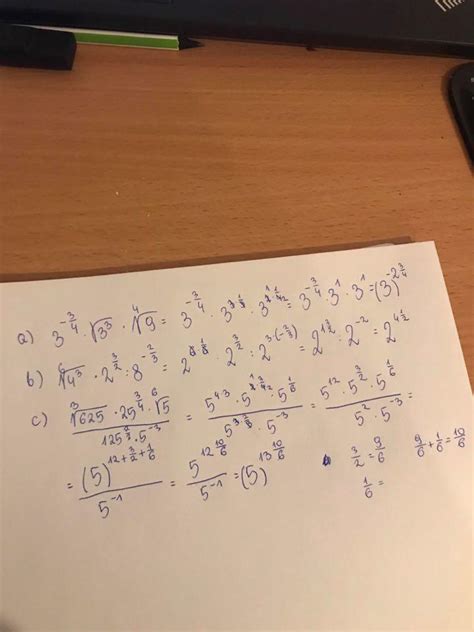 a) 3^{-\frac{3}{4}} · √3³ · ⁴√9 = 3^{-\frac{3}{4}} · 3 · 3 = 3^{-\frac{3}{4}} · 3¹ · 3¹ = (3)^{-2\frac{3}{4}}
b) ⁶√4³ · 2^{\frac{3}{2}} : 8^{-\frac{2}{3}} = 2 · 2^{\frac{3}{2}} : 2^{3·(-\frac{2}{3})} = 2^{1\frac{3}{2}} : 2^{-2} = 2^{4\frac{1}{2}}
c) \frac{³√625 · 25^{\frac{3}{4}} · ⁶√5}{125^{\frac{2}{3}} · 5^{-3}} = \frac{5^{4·3} · 5 · 5^{\frac{1}{6}}}{5 · 5^{-3}} = \frac{5^{12} · 5^{\frac{3}{2}} · 5^{\frac{1}{6}}}{5² · 5^{-3}} =
= \frac{(5)^{12+\frac{3}{2}+\frac{1}{6}}}{5^{-1}} = \frac{5^{12\frac{10}{6}}}{5^{-1}} = (5)^{13\frac{10}{6}} \frac{3}{2} = \frac{9}{6} \frac{9}{6} + \frac{1}{6} = \frac{10}{6}
\frac{1}{6} =